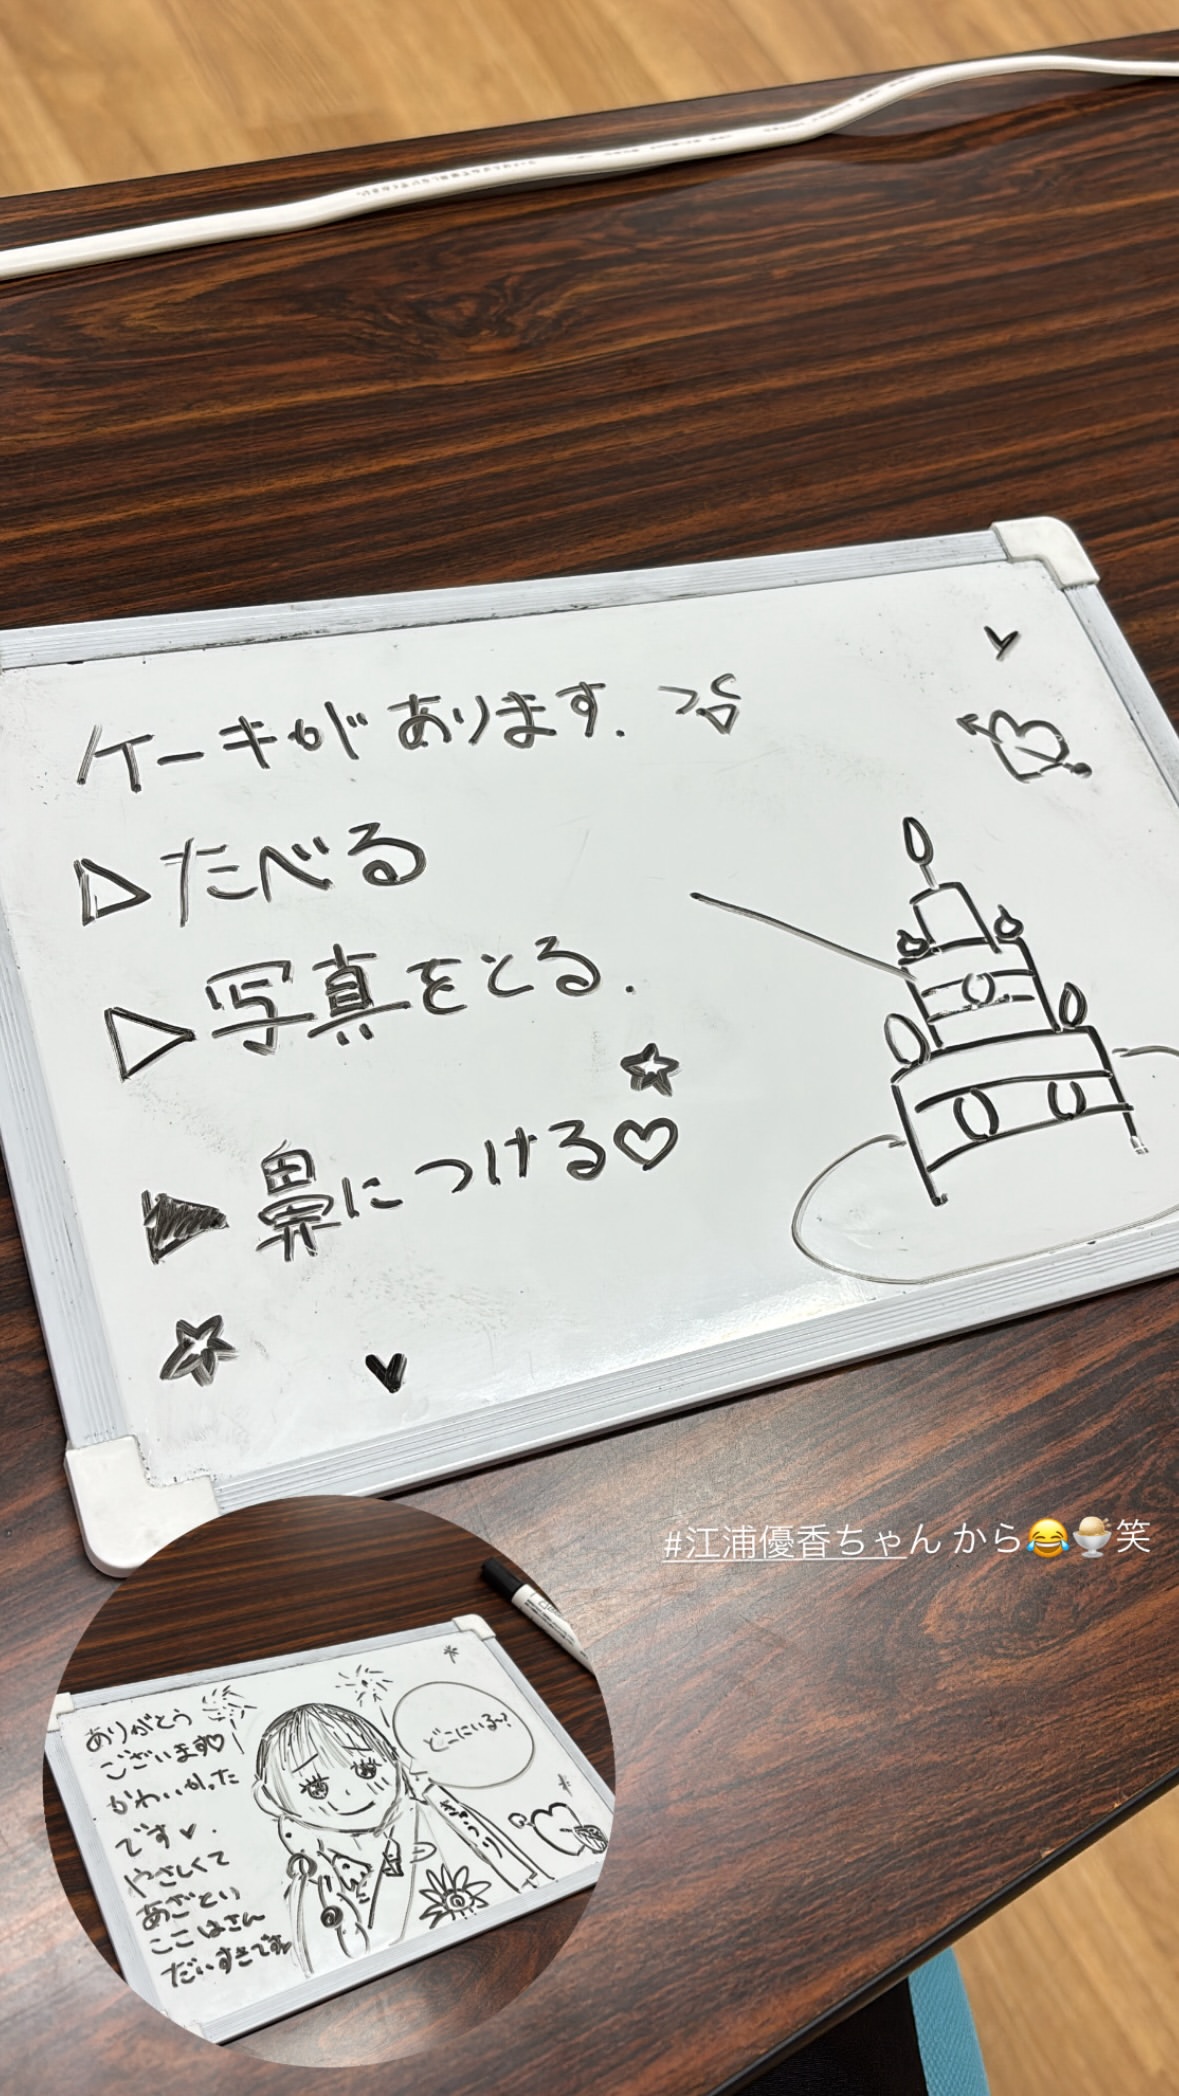 ケーキがあります.
▷たべる
▷写真をとる.
▶鼻につける♡
#江浦優香ちゃん から😂🍨笑
ありがとう
ございます♡
かわいかった
です♥.
やさしくて
あざとい
ここはさん
だいすきです♥
どこにいる〜?